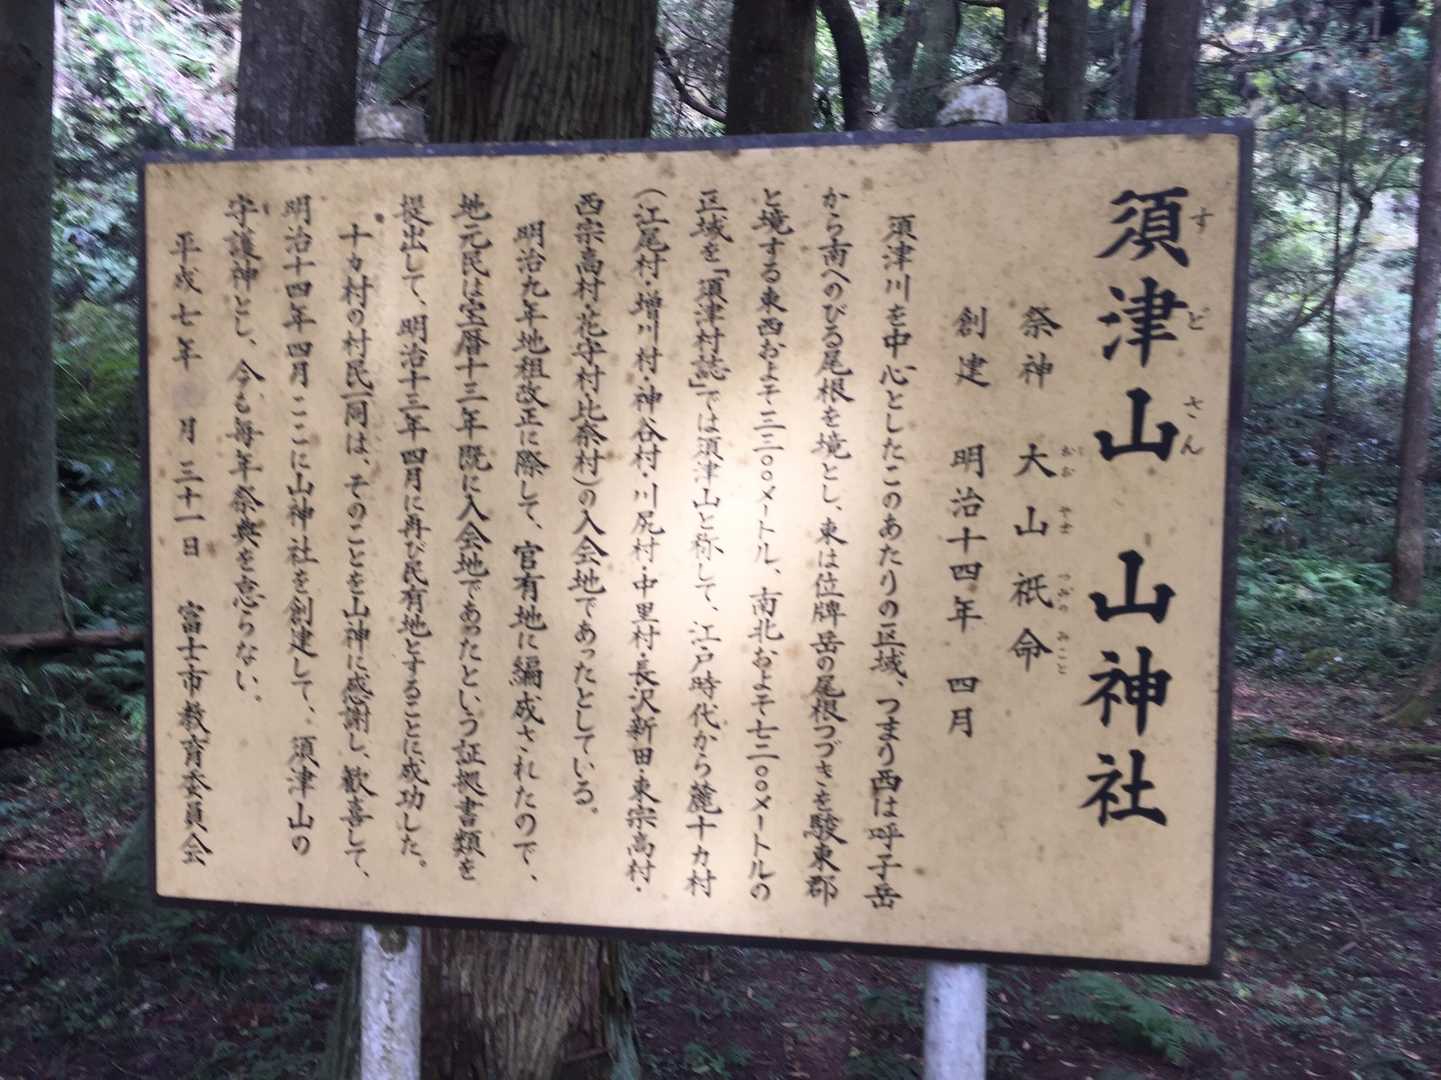 須津山 山神社
すどさん
祭神 大山祇命
おおやまつみのみこと
創建 明治十四年 四月
須津川を中心としたこのあたりの区域、つまり西は呼子岳
から南へのびる尾根を境とし、東は位牌岳の尾根つづきを駿東郡
と境する東西およそ二三〇〇メートル、南北およそ七二〇〇メートルの
区域を「須津村誌」では須津山と称して、江戸時代から麓十カ村
(江尾村・増川村・神谷村・川尻村・中里村・長沢新田・東宗高村・
西宗高村・花守村・比奈村)の入会地であったとしている。
明治九年地租改正に際して、官有地に編成されたので、
地元民は宝暦十三年既に入会地であったという証拠書類を
提出して、明治十三年四月に再び民有地とすることに成功した。
十カ村の村民一同は、そのことを山神に感謝し、歓喜して、
明治十四年四月ここに山神社を創建して、須津山の
守護神とし、今も毎年祭典を怠らない。
平成七年 月三十一日 富士市教育委員会